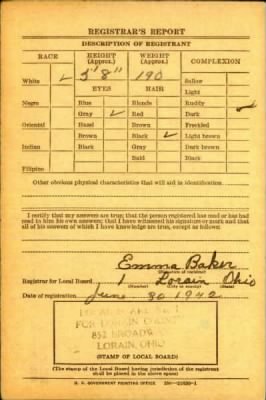 REGISTRAR'S REPORT
DESCRIPTION OF REGISTRANT
RACE HEIGHT (Approx.) WEIGHT (Approx.) COMPLEXION
White ✓ 5'8" 190 Sallow
EYES HAIR Light
Negro Blue Blonde Ruddy
Gray ✓ Red Dark ✓
Oriental Hazel Brown Freckled
Brown Black ✓ Light brown
Indian Black Gray Dark brown
Bald Black
Filipino
Other obvious physical characteristics that will aid in identification
I certify that my answers are true; that the person registered has read or has had
read to him his own answers; that I have witnessed his signature or mark and that
all of his answers of which I have knowledge are true, except as follows:
Emma Baker
(Signature of registrar)
Registrar for Local Board 1 Lorain Ohio
(Number) (City or county) (State)
Date of registration June 30 1942
LOCAL BOARD No. 1
FOR LORAIN COUNTY
852 BROADWAY
LORAIN, OHIO
(STAMP OF LOCAL BOARD)
(The stamp of the Local Board having jurisdiction of the registrant
shall be placed in the above space)
U. S. GOVERNMENT PRINTING OFFICE 16—21630-1